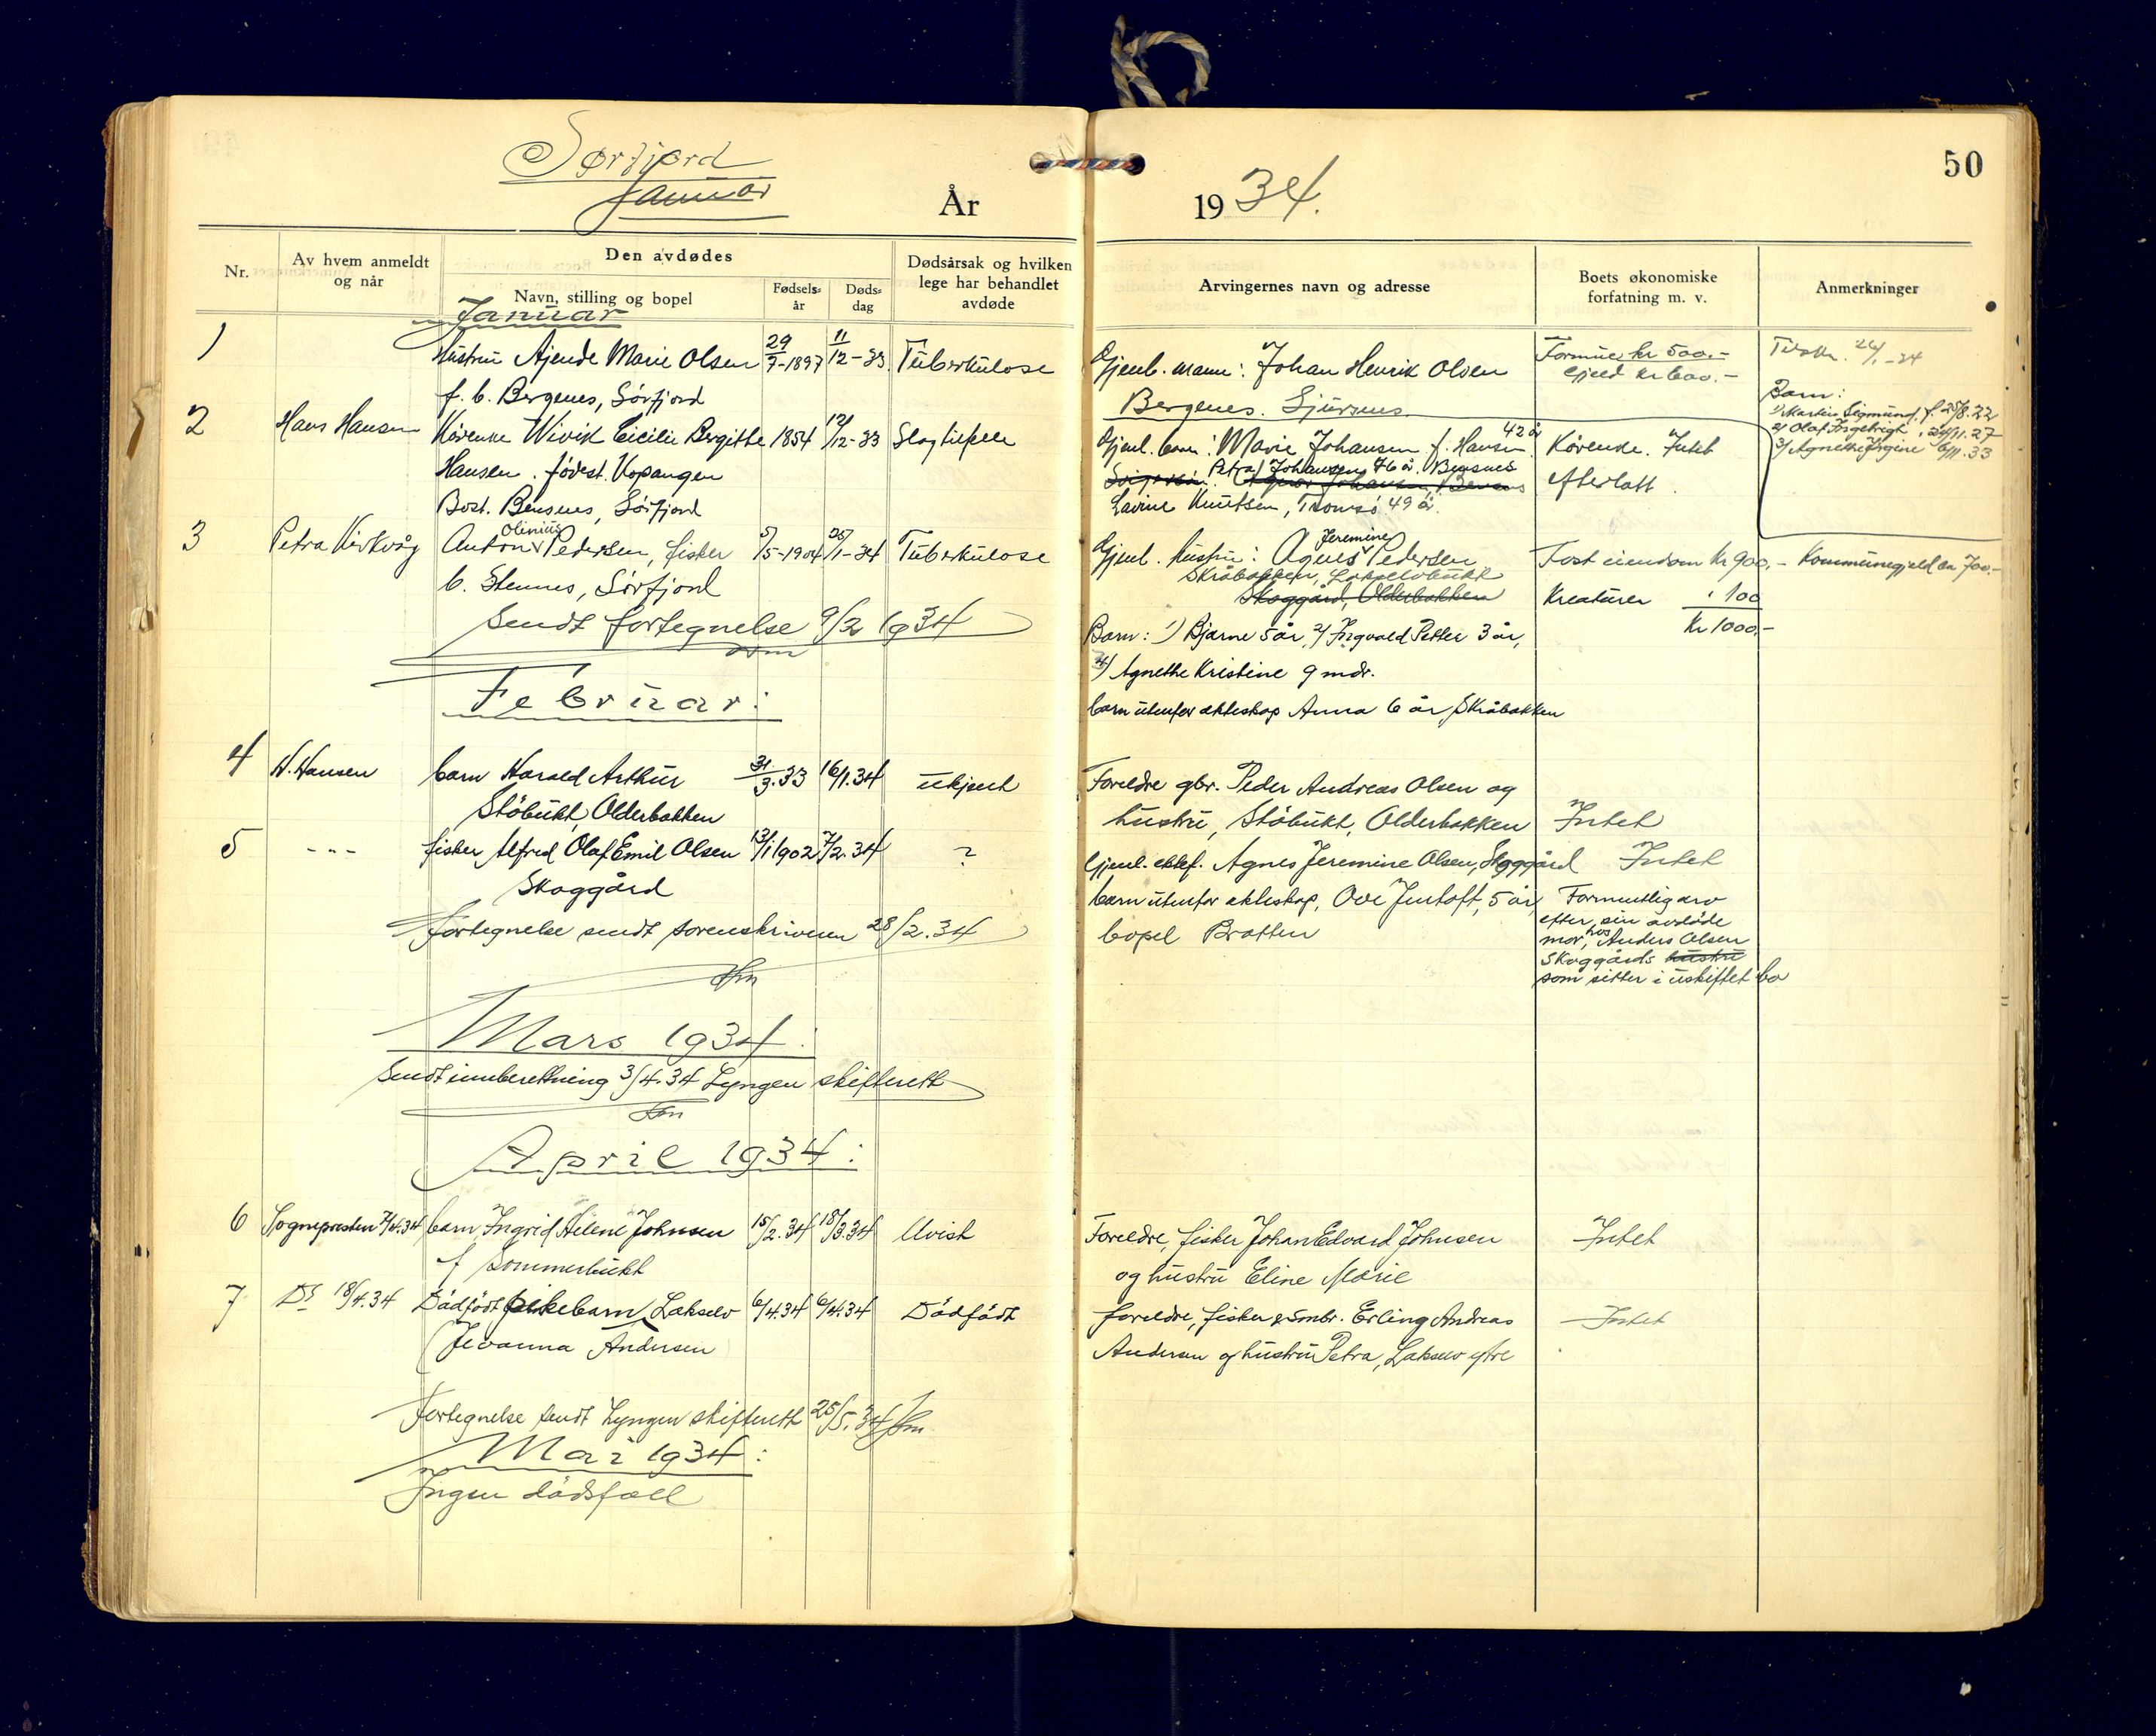 Sørfjord
Januar
År
1934.
50
Nr.
Av hvem anmeldt og når
Den avdødes
Navn, stilling og bopel
Fødsels-år
Døds-dag
Dødsårsak og hvilken lege har behandlet avdøde
Arvingernes navn og adresse
Boets økonomiske forfatning m. v.
Anmerkninger
Januar
1 Hustru Ajende Marie Olsen 29/7-1897 11/12-33. Tuberkulose
f. b. Bergenes, Sørfjord
Gjenl. mann: Johan Henrik Olsen
Bergenes. Sjursnes
Formue kr 500.-
Gjeld kr 600.-
24/1-34
Barn:
1) Martin Sigmund, f. 25/8.22
2) Olaf Ingebrigt, 24/11.27
3) Agnethe Jrgine 6/11.33
2 Hans Hansen Kårenke Wivik Cicilie Bergitte 1854 12/12-33 Slagtilfelle
Hansen. født. Kopangen
Bost. Bensnes, Sørfjord
Gjenl. barn: Marie Johansen f. Hansen 42 år
Petra Johansen 76 år. Bensnes
Lavine Knutsen, Tromsø 49 år.
Kårenke. Intet
efterlatt
3 Petra Kirkvåg Anton Olinius Pedersen, fisker 5/5-1904 25/1-34 Tuberkulose
b. Stennes, Sørfjord
Gjenl. hustru: Agnes Jeremine Pedersen
Skråbakken, Lakselvbukt
Skoggård, Olderbakken
Fast eiendom kr 900.- Kommunegjeld kr 700.-
Kreaturer " 100
Kr 1000.-
Sendt fortegnelse 9/2 1934
Barn: 1) Bjarne 5 år, 2) Ingvald Petter 3 år,
3) Agnethe Kristine 9 mdr.
barn utenfor ekteskap Anna 6 år Skråbakken
Februar:
4 H. Hansen barn Harald Arthur 31/3.33 16/1.34 ukjent
Støbukt, Olderbakken
Foreldre gbr. Peder Andreas Olsen og
hustru, Støbukt, Olderbakken Intet
5 - " - fisker Alfred Olaf Emil Olsen 13/1 1902 7/2.34 ?
Skoggård
Gjenl. ektef. Agnes Jeremine Olsen, Skoggård Intet
barn utenfor ekteskap, Ove Jentoft, 5 år,
bopel Bratten
Formuetlig arv
efter sin avdøde
mor, hos Anders Olsen
Skoggårds hustru
som sitter i uskiftet bo
Fortegnelse sendt sorenskriveren 28/2.34
Mars 1934.
Sendt innberettning 3/4.34 Lyngen skifterett
April 1934:
6 Sognepresten 7/4.34 barn Ingrid Helene Johnsen 15/2.34 18/3.34 Uvist
f Sommerbukt
Foreldre, fisker Johan Edvard Johnsen
og hustru Eline Marie
Intet
7 Do 18/4.34 Dødfødt pikebarn, Lakselv 6/4.34 6/4.34 Dødfødt
(Jevanna Andersen
foreldre, fisker & småbr. Erling Andreas
Andersen og hustru Petra, Lakselv ytre
Intet
Fortegnelse sendt Lyngen skifterett 25/5.34
Mai 1934:
Ingen dødsfall